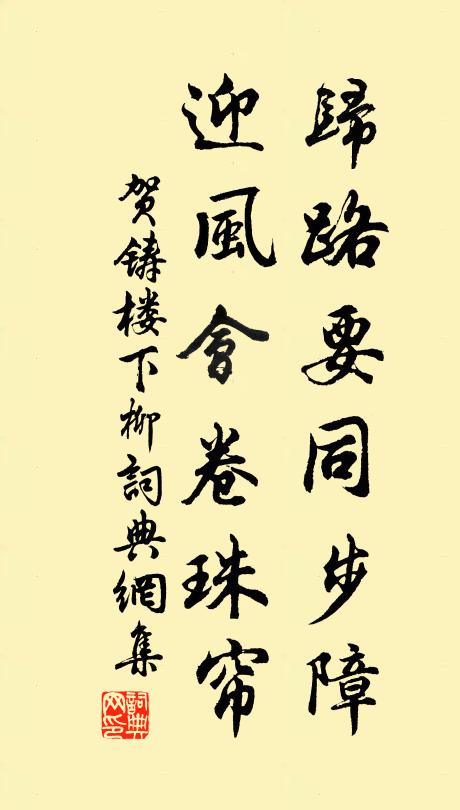 歸路要同步障
迎風會卷珠帘
贺鑄楼下柳詞典網集
詞典網印